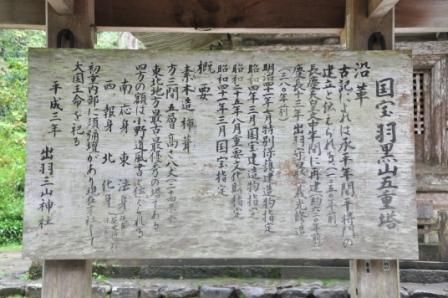 国宝 羽黒山五重塔
沿革
古記によれば承平年間平将門の
建立と伝えられる(一一五〇年前)
長慶天皇文中年間に再建(約六〇〇年前)
慶長十三年出羽守最上義光修造
(三八〇年前)
明治四十一年月特別保護建造物指定
昭和四年二月国宝建造物指定
昭和二十五年八月重要文化財指定
昭和四十一年三月国宝指定
概要
素木造 柿葺
方三間五層 高さ八丈(二十四米)
東北地方最古最佳の塔である
四方の額は小野道風書と伝えられる
南 応身 東 法身
西 報身 北 化身
初重内部に須弥壇があり
大国主命を祀る
平成三年 出羽三山神社